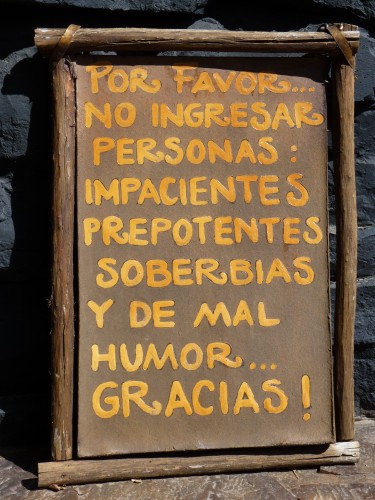 POR FAVOR...
NO INGRESAR
PERSONAS:
IMPACIENTES
PREPOTENTES
SOBERBIAS
Y DE MAL
HUMOR...
GRACIAS!